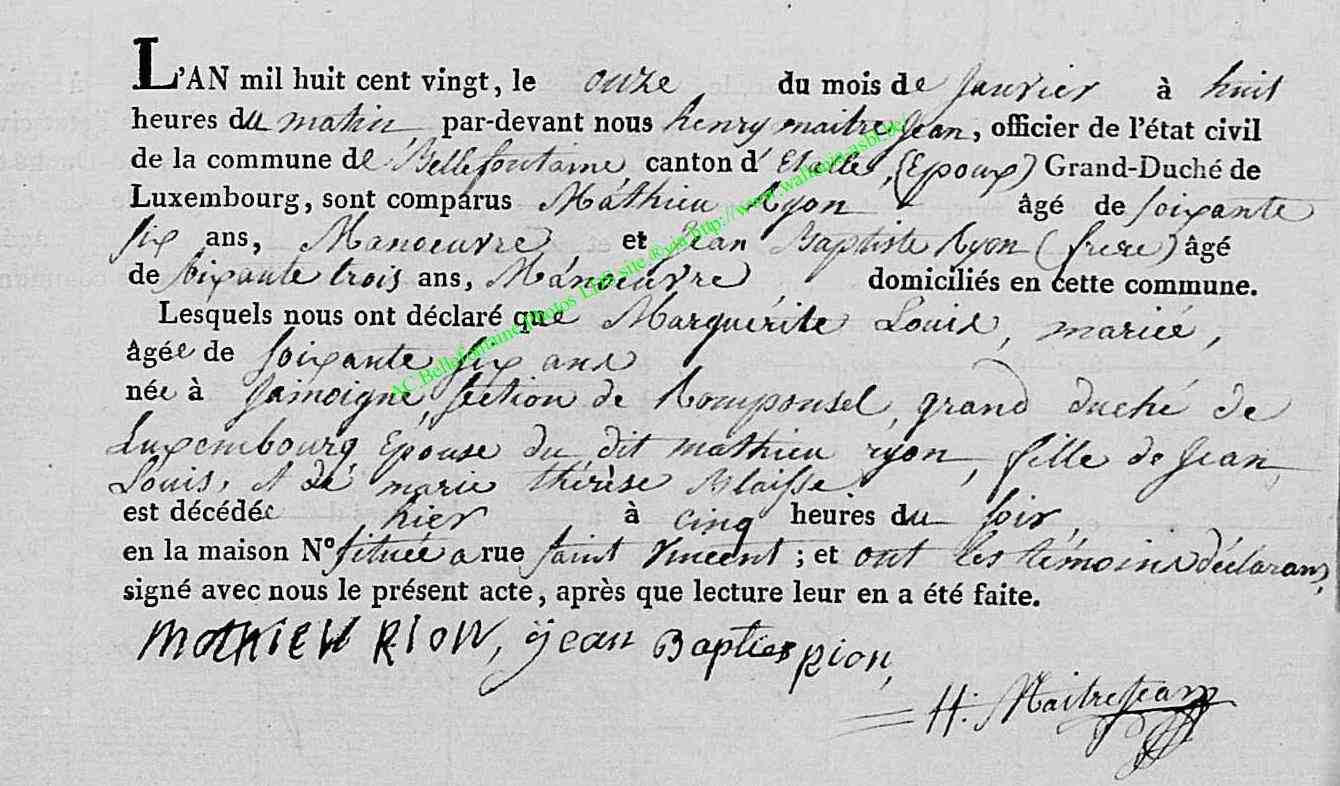 L'AN mil huit cent vingt, le onze du mois de Janvier à huit
heures du matin par-devant nous henry maitre Jean, officier de l'état civil
de la commune de Bellefontaine, canton d'Etalle, (Epoux) Grand-Duché de
Luxembourg, sont comparus Mathieu Ryon âgé de soixante
six ans, Manoeuvre et Jean Baptiste Ryon (frere) âgé
de soixante trois ans, Manoeuvre domiciliés en cette commune.
Lesquels nous ont déclaré que Marguerite Louis, mariée,
âgée de soixante six ans
née à Jamoigne, section de Romponsel, grand duché de
Luxembourg Epouse du dit mathieu ryon, fille de Jean
Louis, & de marie thérèse Blaisse
est décédée hier à cinq heures du soir,
en la maison N° située a rue saint Vincent ; et ont les témoins déclarans,
signé avec nous le présent acte, après que lecture leur en a été faite.
MATHIEU RION, jean Bapties rion,
H. MaitreJean
AC Bellefontaine Photos LDS site via http://www.